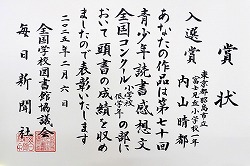 賞状
入選賞
東京都昭島市立
富士見丘小学校
内山晴都
あなたの作品は第七十回
青少年読書感想文
全国コンクール小学校低学年の部に
おいて頭書の成績を収め
ましたので表彰いたします
二〇二五年二月六日
全国学校図書館協議会
毎日新聞社